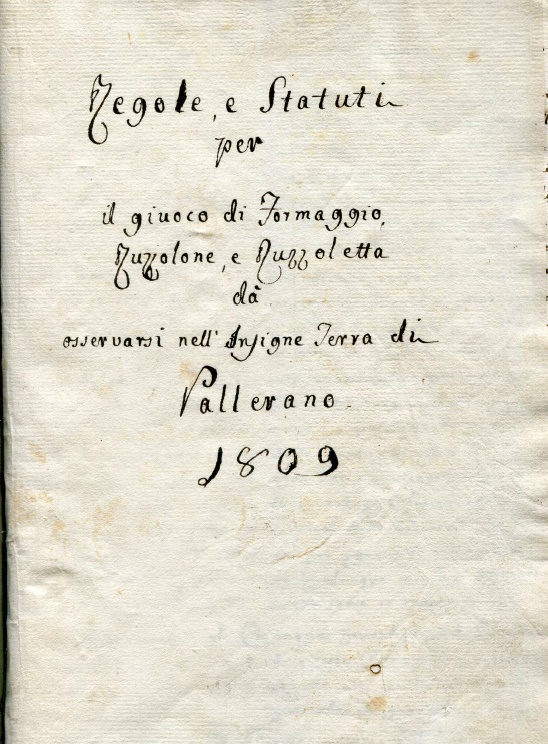 Regole, e Statuti
per
il giuoco di Formaggio,
Ruzzolone, e Ruzzoletta
dà
osservarsi nell' Insigne Terra di
Vallerano.
1809